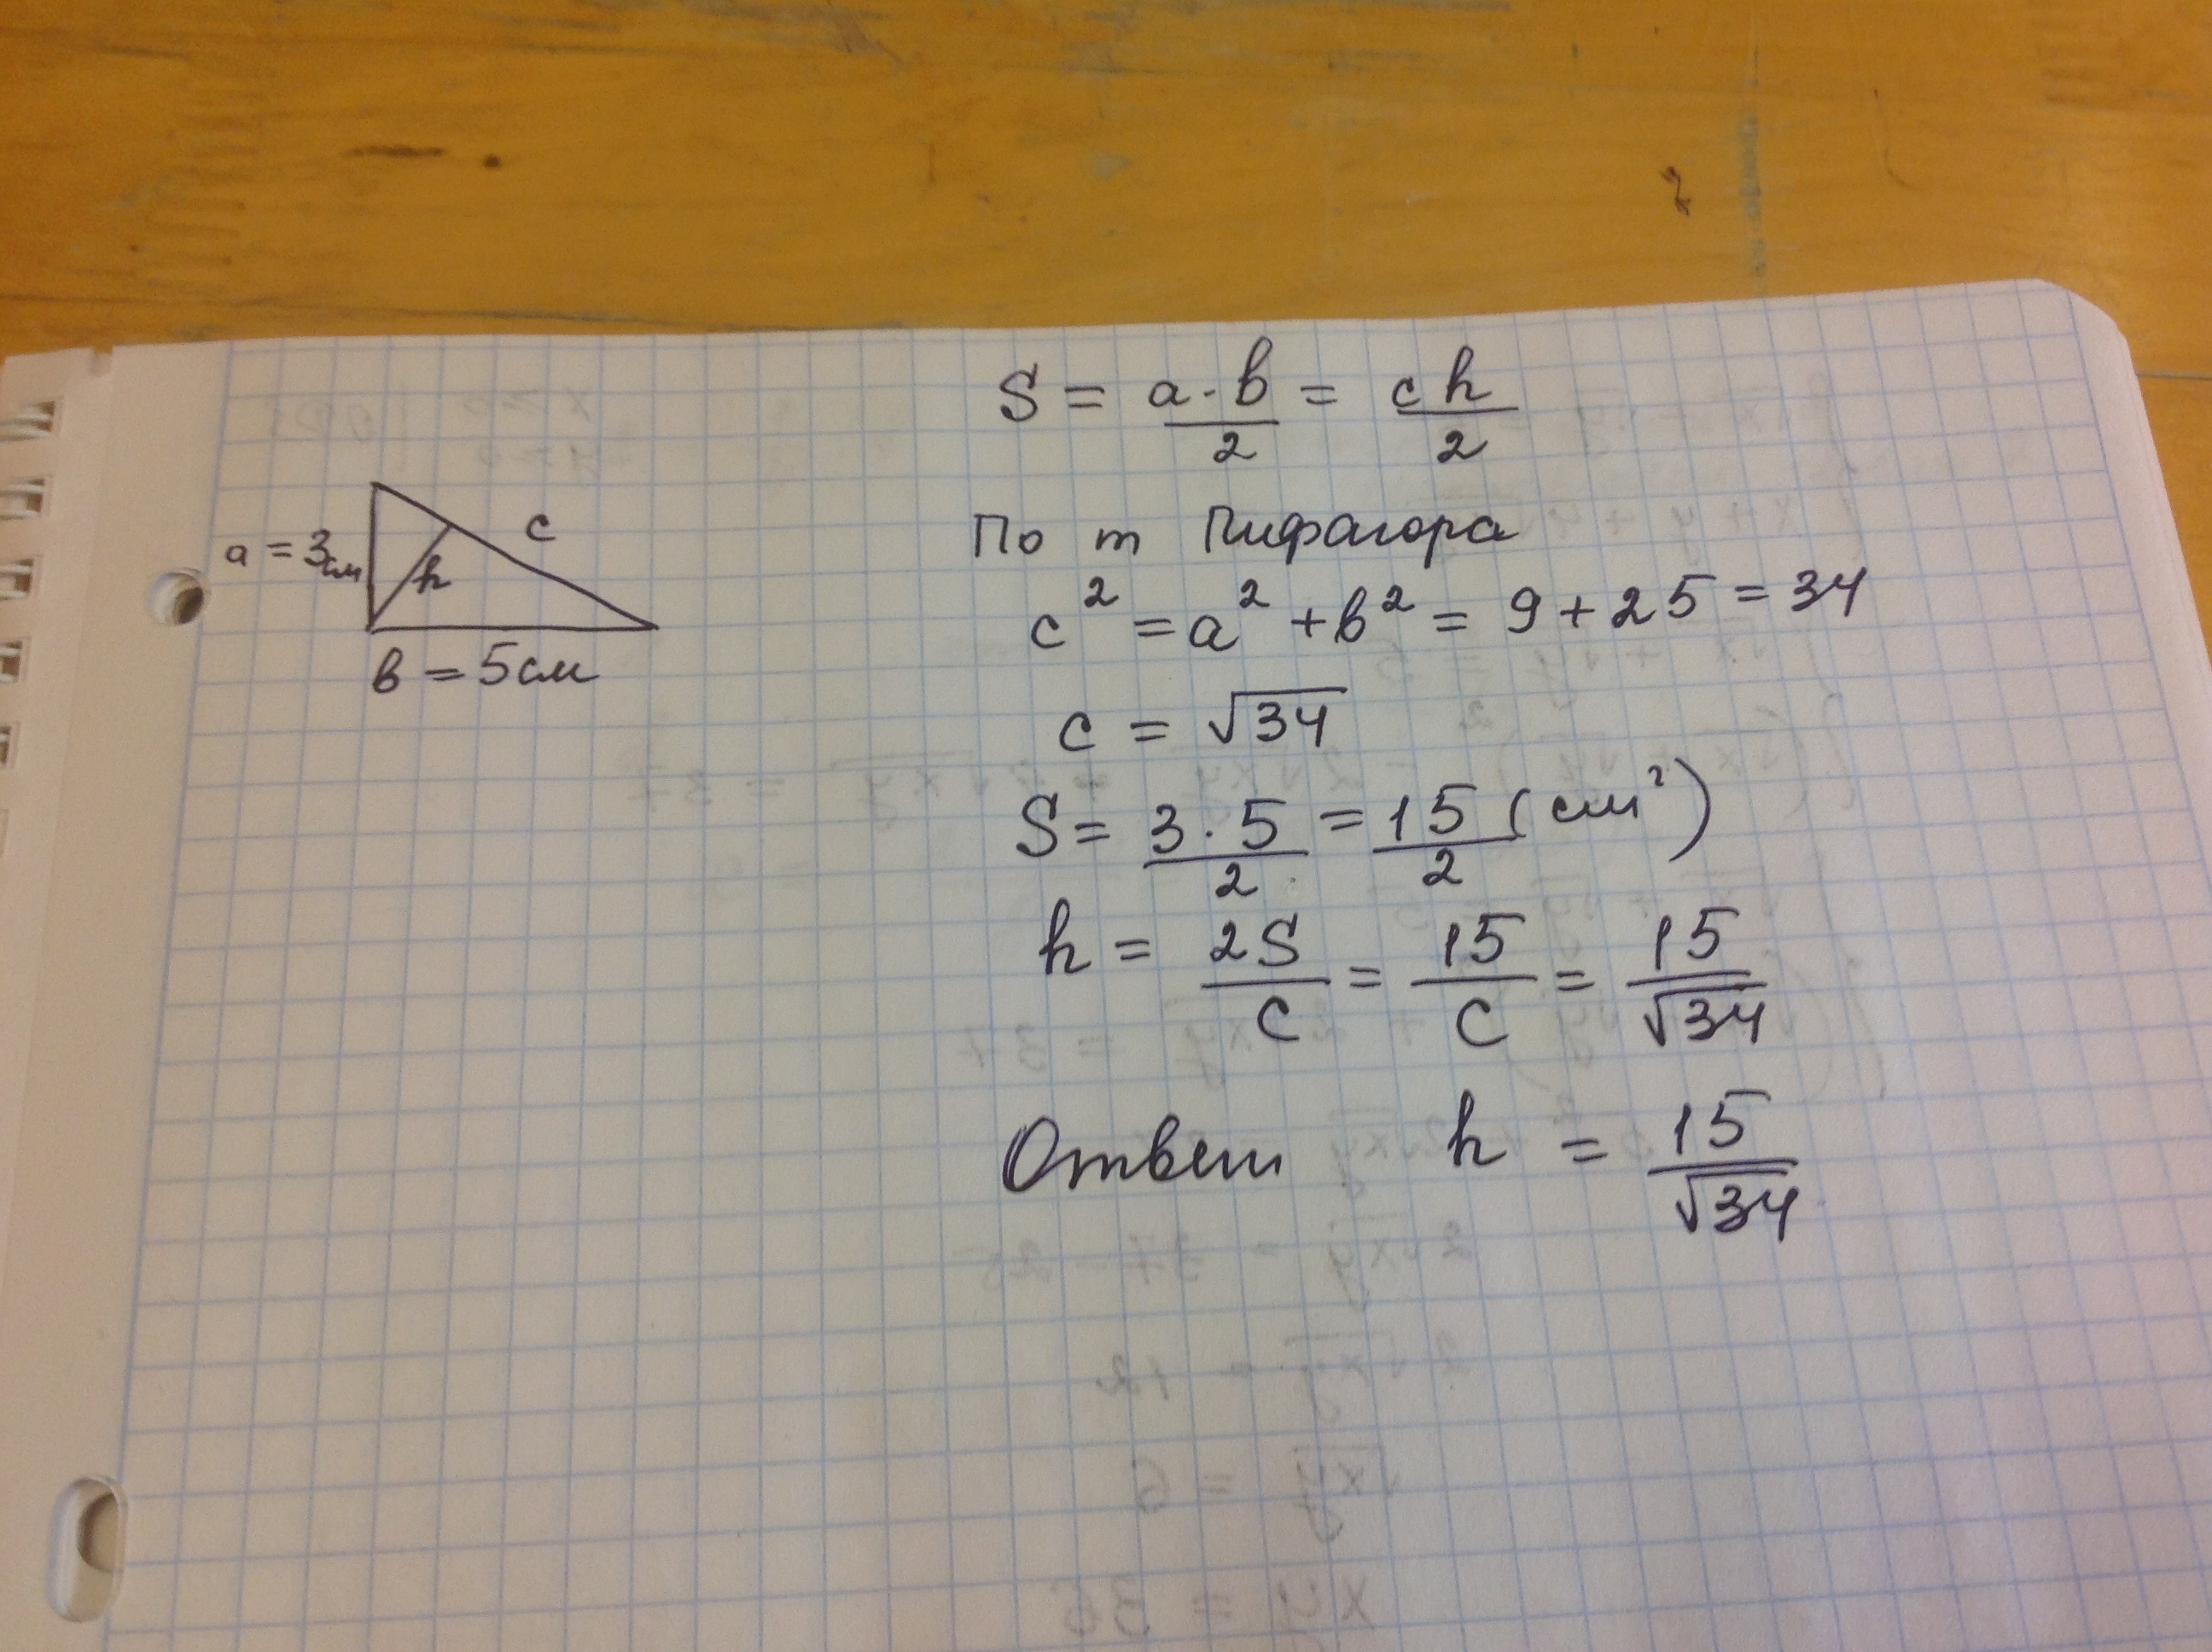 a = 3см
h
c
в = 5см
S = a · b / 2 = ch / 2
По т Пифагора
c² = a² + b² = 9 + 25 = 34
c = √34
S = 3 · 5 / 2 = 15 / 2 (см²)
h = 2S / C = 15 / C = 15 / √34
Ответ h = 15 / √34